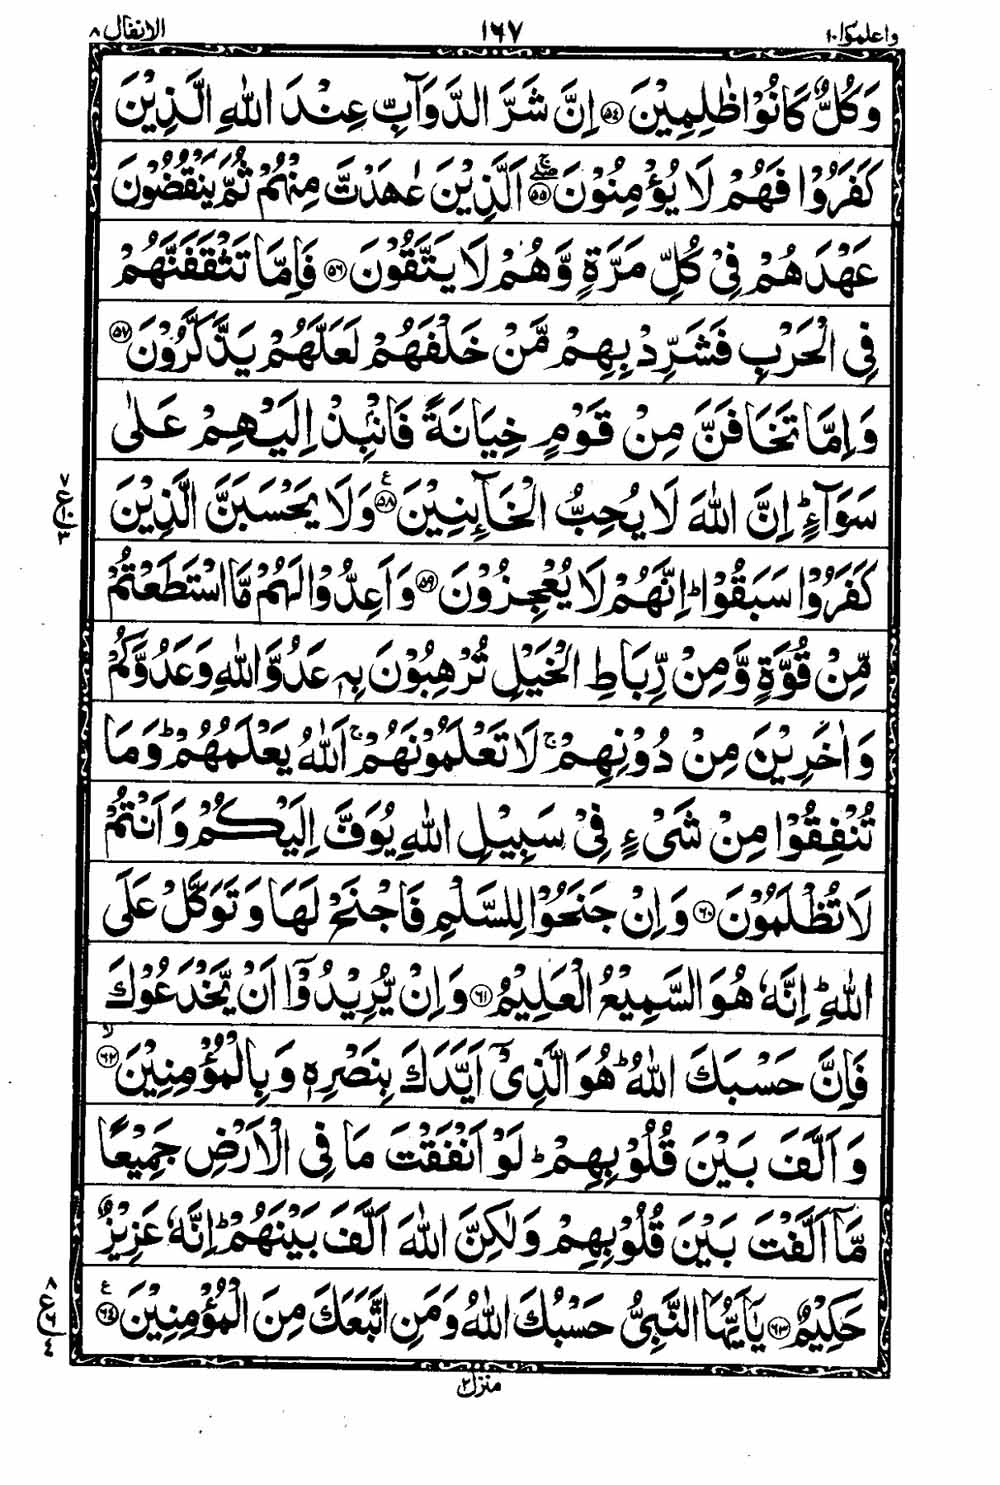 واعلموا ١٠ ١٦٧ الانفال ٨
وَكُلٌّ كَانُوْا ظٰلِمِيْنَ ۝٥٤ اِنَّ شَرَّ الدَّوَآبِّ عِنْدَ اللّٰهِ الَّذِيْنَ
كَفَرُوْا فَهُمْ لَا يُؤْمِنُوْنَ ۝٥٥ۖۚ اَلَّذِيْنَ عٰهَدْتَّ مِنْهُمْ ثُمَّ يَنْقُضُوْنَ
عَهْدَهُمْ فِيْ كُلِّ مَرَّةٍ وَّهُمْ لَا يَتَّقُوْنَ ۝٥٦ فَاِمَّا تَثْقَفَنَّهُمْ
فِي الْحَرْبِ فَشَرِّدْ بِهِمْ مَّنْ خَلْفَهُمْ لَعَلَّهُمْ يَذَّكَّرُوْنَ ۝٥٧
وَاِمَّا تَخَافَنَّ مِنْ قَوْمٍ خِيَانَةً فَانْۢبِذْ اِلَيْهِمْ عَلٰى
سَوَآءٍ ؕ اِنَّ اللّٰهَ لَا يُحِبُّ الْخَآئِنِيْنَ ۝٥٨ ع وَلَا يَحْسَبَنَّ الَّذِيْنَ
٧ ع ١٠ ٣
كَفَرُوْا سَبَقُوْا ؕ اِنَّهُمْ لَا يُعْجِزُوْنَ ۝٥٩ وَاَعِدُّوْا لَهُمْ مَّا اسْتَطَعْتُمْ
مِّنْ قُوَّةٍ وَّمِنْ رِّبَاطِ الْخَيْلِ تُرْهِبُوْنَ بِهٖ عَدُوَّ اللّٰهِ وَعَدُوَّكُمْ
وَاٰخَرِيْنَ مِنْ دُوْنِهِمْ ۚ لَا تَعْلَمُوْنَهُمْ ۚ اَللّٰهُ يَعْلَمُهُمْ ؕ وَمَا
تُنْفِقُوْا مِنْ شَيْءٍ فِيْ سَبِيْلِ اللّٰهِ يُوَفَّ اِلَيْكُمْ وَاَنْتُمْ
لَا تُظْلَمُوْنَ ۝٦٠ وَاِنْ جَنَحُوْا لِلسَّلْمِ فَاجْنَحْ لَهَا وَتَوَكَّلْ عَلَى
اللّٰهِ ؕ اِنَّهٗ هُوَ السَّمِيْعُ الْعَلِيْمُ ۝٦١ وَاِنْ يُّرِيْدُوْٓا اَنْ يَّخْدَعُوْكَ
فَاِنَّ حَسْبَكَ اللّٰهُ ؕ هُوَ الَّذِيْٓ اَيَّدَكَ بِنَصْرِهٖ وَبِالْمُؤْمِنِيْنَ ۝٦٢ۙ
وَاَلَّفَ بَيْنَ قُلُوْبِهِمْ ؕ لَوْ اَنْفَقْتَ مَا فِي الْاَرْضِ جَمِيْعًا
مَّآ اَلَّفْتَ بَيْنَ قُلُوْبِهِمْ وَلٰكِنَّ اللّٰهَ اَلَّفَ بَيْنَهُمْ ؕ اِنَّهٗ عَزِيْزٌ
حَكِيْمٌ ۝٦٣ يٰٓاَيُّهَا النَّبِيُّ حَسْبُكَ اللّٰهُ وَمَنِ اتَّبَعَكَ مِنَ الْمُؤْمِنِيْنَ ۝٦٤ ع
٨ ع ٦ ٤
منزل ٢